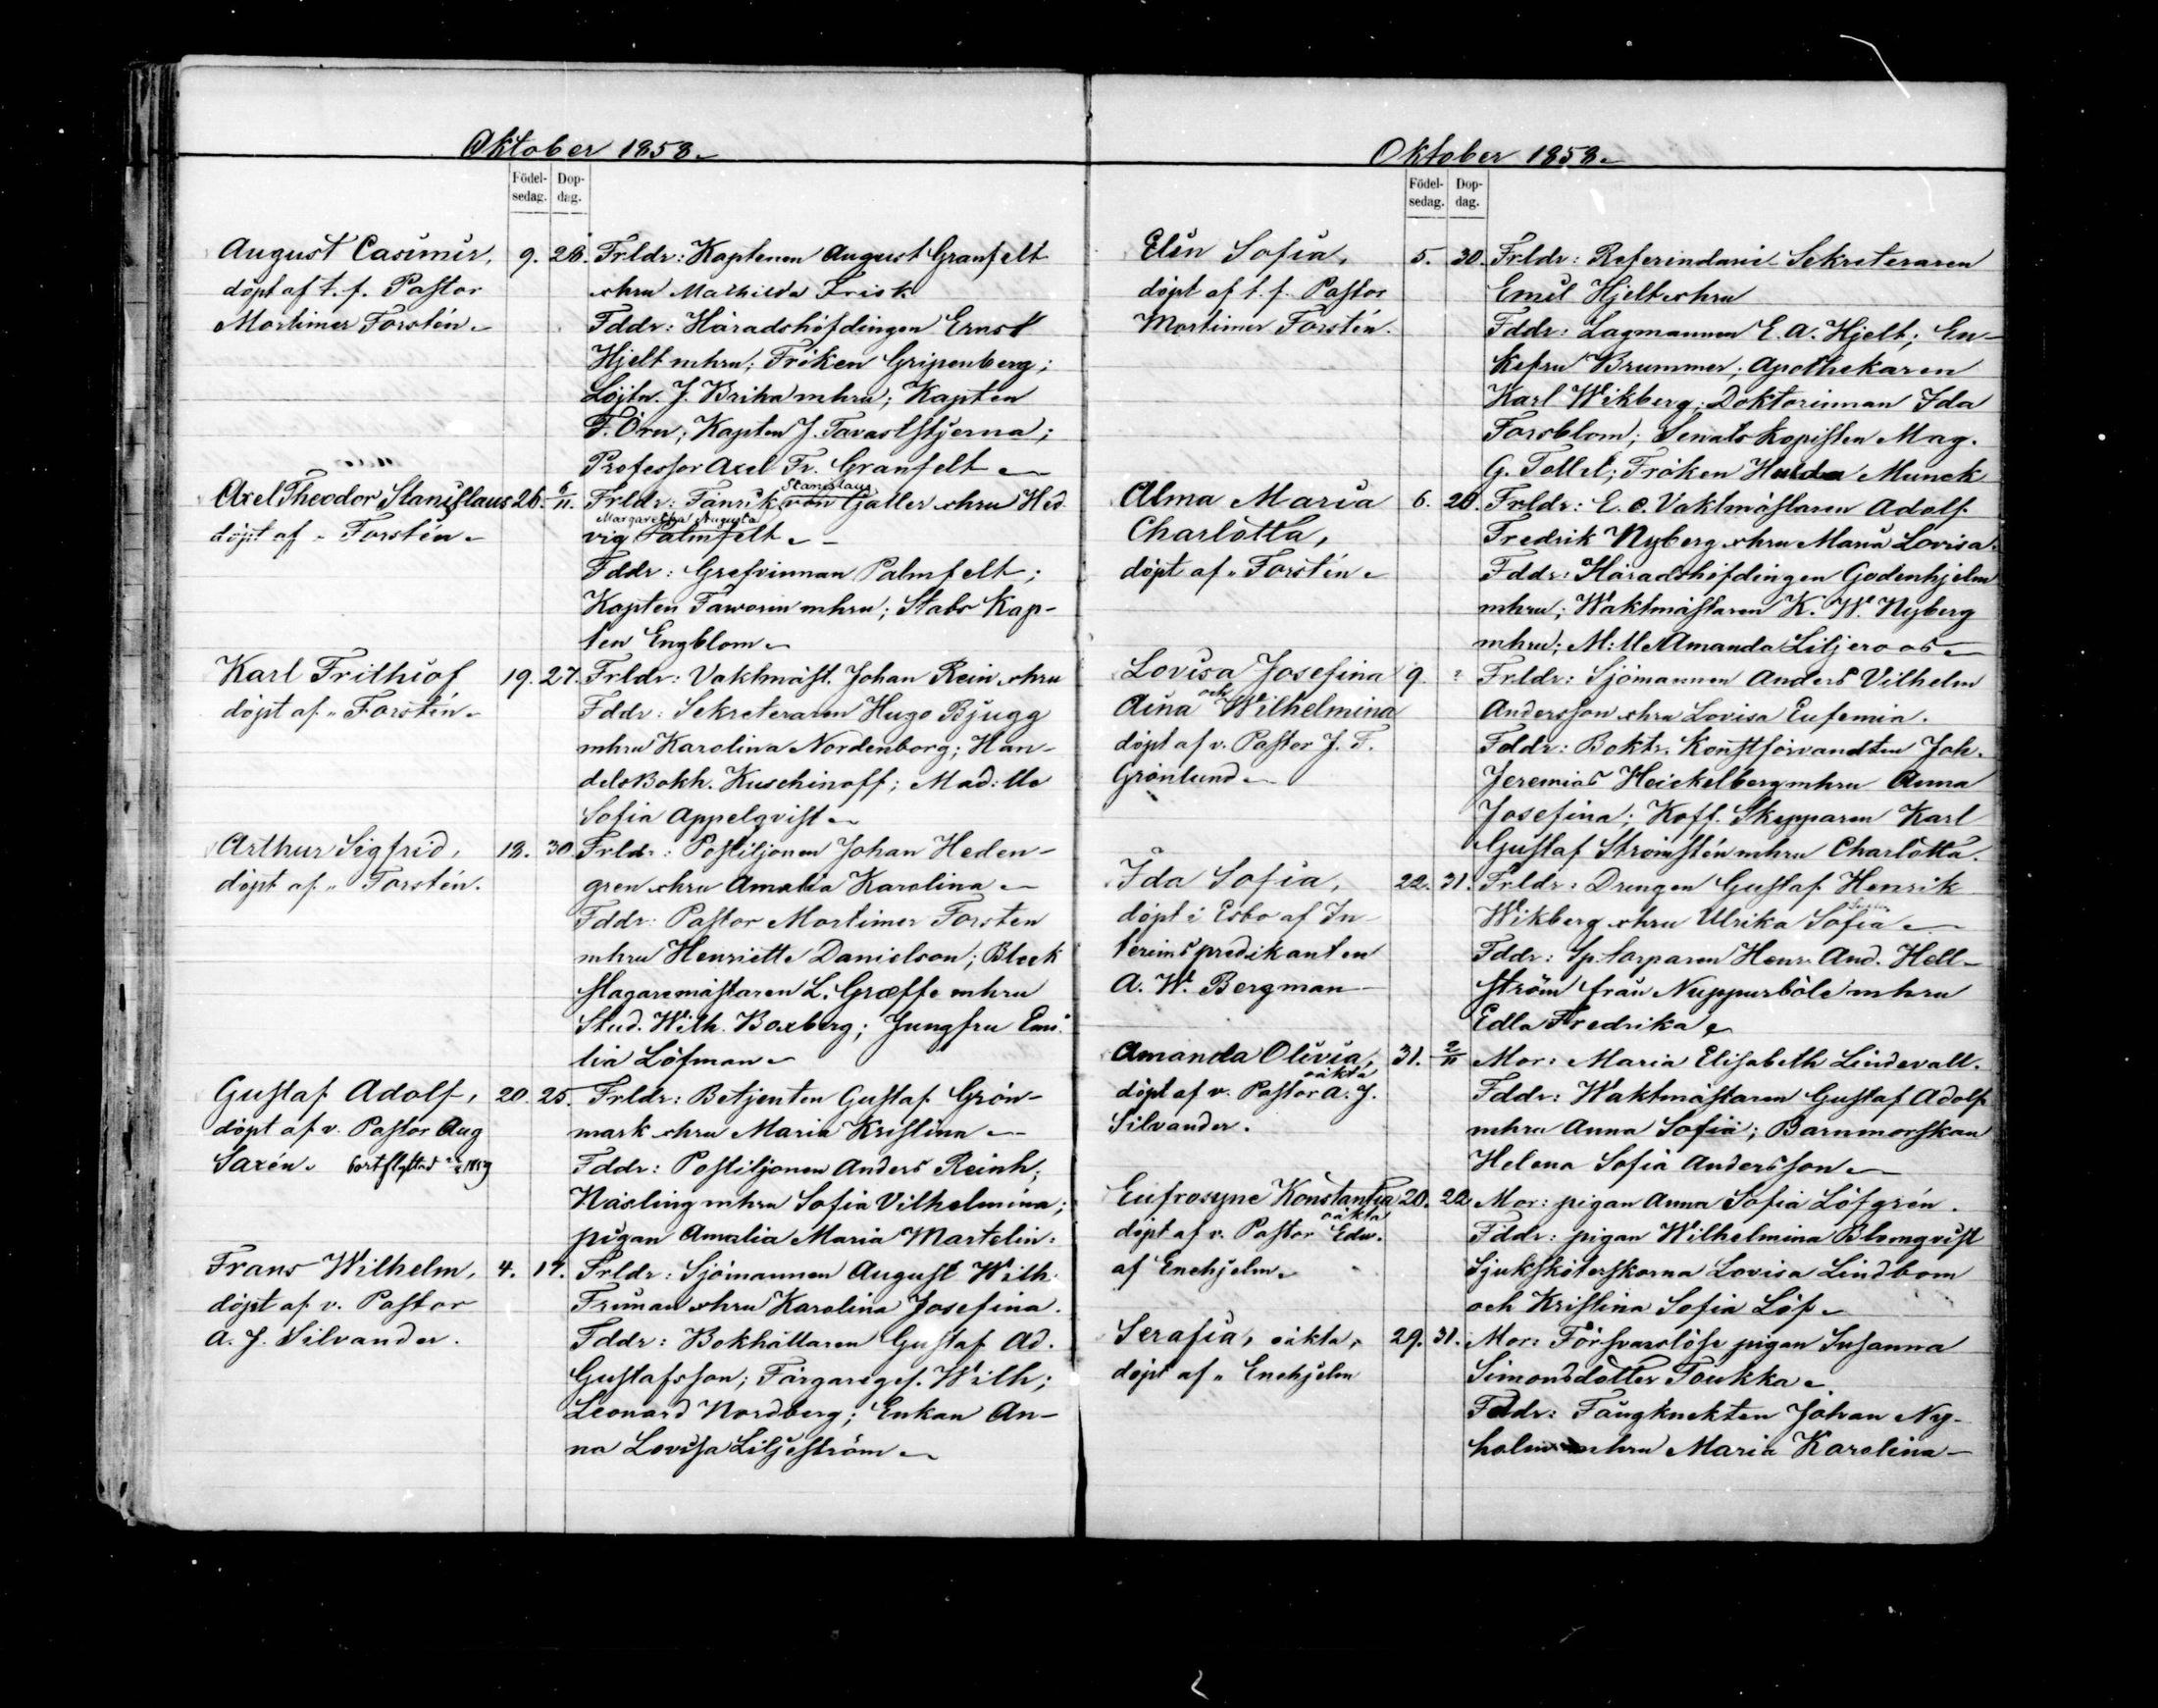 Oktober 1858.
Födel-
sedag.
Dop-
dag.
August Casimir,
döpt af t. f. Pastor
Mortimer Forstén.
9. 26.
Frldr: Kaptenen August Granfelt
o hru Mathilda Frisk.
Fddr: Häradshöfdingen Ernst
Hjelt m hru; Fröken Gripenberg;
Löjtn. J. Briha m hru; Kapten
F. Örn; Kapten J. Tavaststjerna;
Professor Axel Fr. Granfelt
Axel Theodor Stanislaus
döpt af " Forstén.
26. 6/11.
Stanislaus
Frldr: Fänrik von Galler o hru Hed
Margaretha Augusta
vig Palmfelt.
Fddr: Grefvinnan Palmfelt;
Kapten Taworin m hru; Stabs Kap-
ten Engblom
Karl Frithiof
döpt af " Forstén.
19. 27.
Frldr: Vaktmäst. Johan Rein o hru
Fddr: Sekreteraren Hugo Bjugg
m hru Karolina Nordenborg; Han-
dels Bokh. Kuschinoff; Mad:lle
Sofia Appelqvist
Arthur Sigfrid,
döpt af " Forstén.
18. 30.
Frldr: Postiljonen Johan Heden-
gren o hru Amalia Karolina
Fddr: Pastor Mortimer Forsten
m hru Henriette Danielson; Bleck
slagaremästaren L. Græffe m hru
Stud. Wilh. Boxberg; Jungfru Emi
lia Löfman
Gustaf Adolf,
döpt af v. Pastor Aug
Saxén. bortflyttad 1859
20. 25.
Frldr: Betjenten Gustaf Grön-
mark o hru Maria Kristina
Fddr: Postiljonen Anders Reinh.
Näsling m hru Sofia Vilhelmina;
pigan Amalia Maria Martelin:
Frans Wilhelm,
döpt af v. Pastor
A. J. Silvander.
4. 17.
Frldr: Sjömannen August Wilh.
Friman o hru Karolina Josefina.
Fddr: Bokhållaren Gustaf Ad.
Gustafsson; Färgaregef. Wilh;
Leonard Nordberg; Enkan An-
na Lovisa Liljeström
Oktober 1858.
Födel-
sedag.
Dop-
dag.
Elin Sofia,
döpt af t. f. Pastor
Mortimer Forstén.
5. 30.
Frldr: Referindarie Sekreteraren
Emil Hjelt o hru
Fddr: Lagmannen E. A. Hjelt; En-
kefru Brummer; Apothekaren
Karl Wikberg; Doktorinnan Ida
Forsblom; Senats Kopisten Mag.
G. Tollet; Fröken Hulda Munck
Alma Maria
Charlotta,
döpt af " Forstén
6. 20.
Frldr: E. O. Vaktmästaren Adolf
Fredrik Nyberg o hru Maria Lovisa.
Fddr: Häradshöfdingen Godenhjelm
m hru; Waktmästaren K. W. Nyberg
m hru; M:lle Amanda Liljeroos
Lovisa Josefina
och
Aina Wilhelmina
döpt af v. Pastor J. F.
Grönlund
9. ?
Frldr: Sjömannen Anders Vilhelm
Andersson o hru Lovisa Eufemia.
Fddr: Boktr. Konstförvandten Joh.
Jeremias Heickelberg m hru Anna
Josefina; Koff. Skepparen Karl
Gustaf Strömstén m hru Charlotta.
Ida Sofia,
döpt i Esbo af In-
terimspredikanten
A. W. Bergman
22. 31.
Frldr: Drengen Gustaf Henrik
Wikberg o hru Ulrika Sofia
Fddr: Sp. torparen Henr. And. Hell-
ström från Nuppurböle m hru
Edla Fredrika
Amanda Olivia,
oäkta
döpt af v. Pastor A. J.
Silvander.
31. 2/11
Mor: Maria Elisabeth Lindevall.
Fddr: Waktmästaren Gustaf Adolf
m hru Anna Sofia; Barnmorskan
Helena Sofia Andersson
Eufrosyne Konstantia
oäkta
döpt af v. Pastor Edv.
af Enehjelm.
20. 22
Mor: pigan Anna Sofia Löfgrén.
Fddr: pigan Wilhelmina Blomqvist
Sjuksköterskorna Lovisa Lindbom
och Kristina Sofia Löf
Serafia, oäkta,
döpt af " Enehjelm
29. 31.
Mor: Försvarslöse pigan Susanna
Simonsdotter Toukka
Fddr: Fångknekten Johan Ny-
holm m hru Maria Karolina